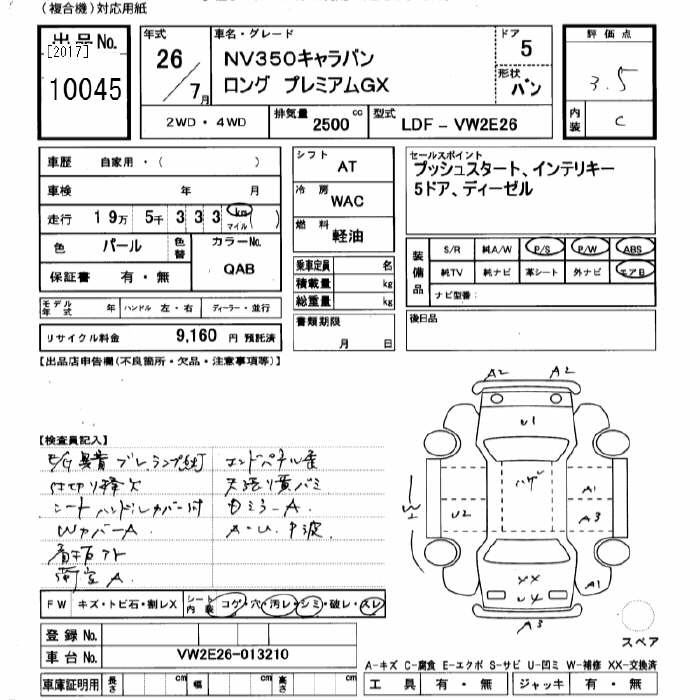 (複合機)対応用紙
出品No.
[2017]
10045
年式
26
7月
車名・グレード
NV350キャラバン
ロング プレミアムGX
ドア
5
形状
バン
評価点
3.5
内装
C
2WD・4WD
排気量
2500 cc
型式
LDF-VW2E26
車歴 自家用・( )
車検 年 月
走行 19万 5千 3 3 3 km マイル ( )
色 パール 色替 カラーNo.
QAB
保証書 有・無
モデル年式 年 ハンドル 左・右 ディーラー・並行
リサイクル料金 9,160 円 預託済
シフト AT
冷房 WAC
燃料 軽油
乗車定員 名
積載量 kg
総重量 kg
書類期限
月 日
セールスポイント
プッシュスタート、インテリキー
5ドア、ディーゼル
装備品
S/R 純A/W P/S P/W ABS
純TV 純ナビ 革シート 外ナビ エアB
ナビ型番:
後日品
【出品店申告欄(不良箇所・欠品・注意事項等)】
【検査員記入】
E/G異音 ブレーランプ点灯
シートハンドルカバー付
WカバーA
雨室A
エンドパネル歪
天張り黄バミ
ロミラーA
A・U 中波
FW キズ・トビ石・割レX シート内装 コゲ・穴・汚レ・シミ・破レ・スレ
登録No.
車台No. VW2E26-013210
車庫証明用 長さ cm 幅 cm 高さ cm
A2 A2
U1
ハゲ
A1
W1
U2
A3
XX
U4
A1
A3
スペア
A-キズ C-腐食 E-エクボ S-サビ U-凹ミ W-補修 XX-交換済
工具 有・無 ジャッキ 有・無